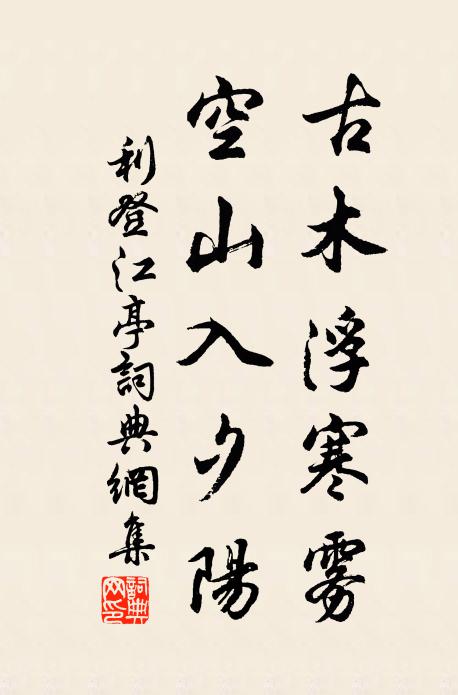 古木浮寒雾
空山入夕陽
利登江亭詞典網集
詞典网印